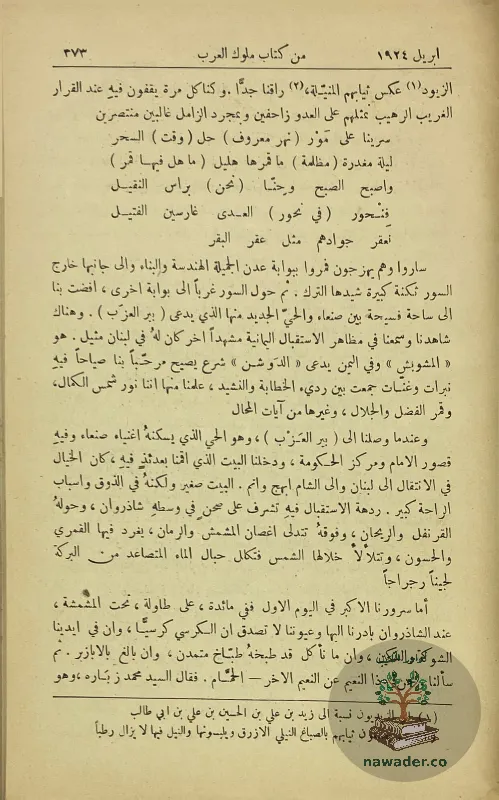 ابريل ١٩٢٤ من كتاب ملوك العرب ٣٧٣
الزيود(١) عكس ثيابهم المنيّلة،(٢) راقنا جدًّا. وكنا كل مرة يقفون فيهِ عند القرار
الغريب الرهيب نمثلهم على العدو زاحفين وبمجرد الزامل غالبين منتصرين
سرينا على مَوْر (نهر معروف) حل (وقت) السحر
ليلة مغدرة (مظلمة) ما قمرها هليل (ما هل فيها قمر)
واصبح الصبح وحنّا (نحن) براس النقيل
فنسْحور (في نحور) العدى غارسين الفتيل
نعقر جوادهم مثل عقر البقر
ساروا وهم يهزجون فمروا ببوابة عدن الجميلة الهندسة والبناء والى جانبها خارج
السور ثكنة كبيرة شيدها الترك. ثم حول السور غرباً الى بوابة اخرى، افضت بنا
الى ساحة فسيحة بين صنعاء والحيّ الجديد منها الذي يدعى (بير العزب). وهناك
شاهدنا وسمعنا في مظاهر الاستقبال اليمانية مشهداً اخر كان لهُ في لبنان مثيل. هو
«المشوبش» وفي اليمن يدعى «الدَوشن» شرع يصيح مرحّباً بنا صياحاً فيهِ
نبرات وغنّات جمعت بين رديء الخطابة والنشيد، علمنا منها اننا نور شمس الكمال،
وقمر الفضل والجلال، وغيرها من آيات المحال
وعندما وصلنا الى (بير العَزب)، وهو الحي الذي يسكنهُ اغنياء صنعاء وفيهِ
قصور الامام ومركز الحكومة، ودخلنا البيت الذي اقمنا بعدئذٍ فيهِ، كان الخيال
في الانتقال الى لبنان والى الشام ابهج واتم. البيت صغير ولكنهُ في الذوق واسباب
الراحة كبير. ردهة الاستقبال فيهِ تشرف على صحن في وسطهِ شاذروان، وحولهُ
القرنفل والريحان، وفوقهُ تتدلى اغصان المشمش والرمان، يغرد فيها القمري
والحسون، وتتلألأ خلالها الشمس فتكلل حبال الماء المتصاعد من البركة
لجيناً رجراجاً
أما سرورنا الاكبر في اليوم الاول ففي مائدة، على طاولة، تحت المشمشة،
عند الشاذروان بادرنا اليها وعيوننا لا تصدق ان الكرسي كرسيًّا، وان في ايدينا
الشوكة والسكين، وان ما نأكل قد طبخهُ طبّاخ متمدن، وان بالغ بالابازير. ثم
سألنا هذا النعيم عن النعيم الاخر — الحمّام. فقال السيد محمد زباره، وهو
الزيديون نسبة الى زيد بن علي بن الحسين بن علي بن ابي طالب
ثيابهم بالصباغ النيلي الازرق ويلبسونها والنيل فيها لا يزال رطباً
nawader.co